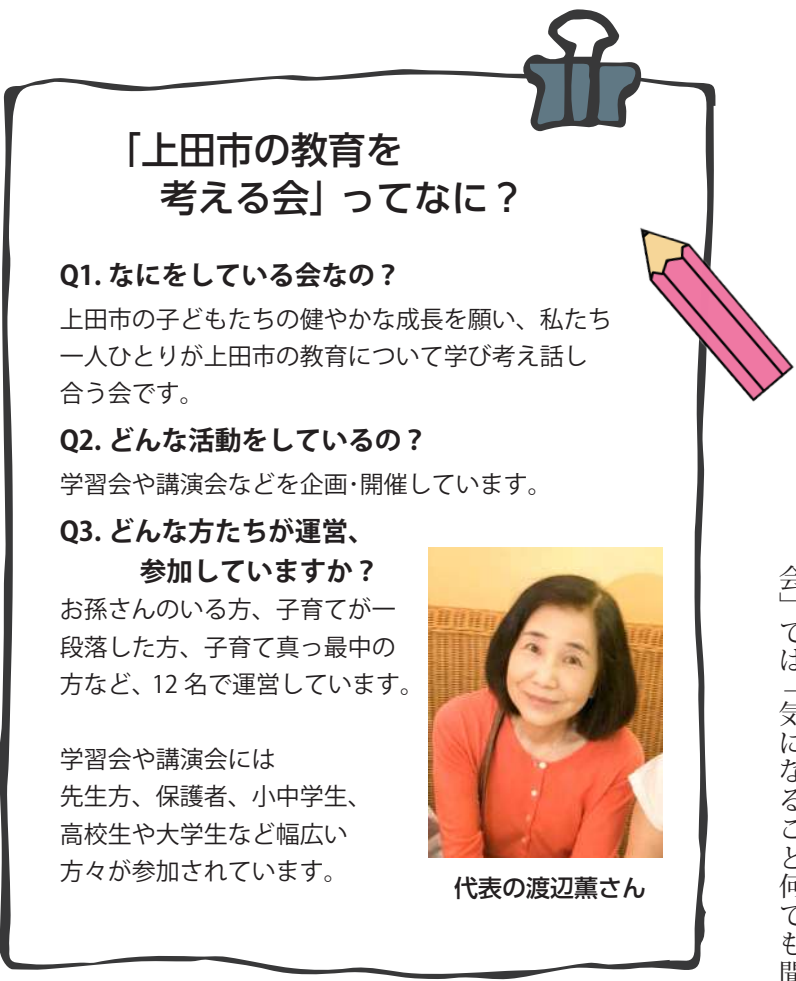 「上田市の教育を
考える会」ってなに？
Q1. なにをしている会なの？
上田市の子どもたちの健やかな成長を願い、私たち
一人ひとりが上田市の教育について学び考え話し
合う会です。
Q2. どんな活動をしているの？
学習会や講演会などを企画･開催しています。
Q3. どんな方たちが運営、
参加していますか？
お孫さんのいる方、子育てが一
段落した方、子育て真っ最中の
方など、12 名で運営しています。
学習会や講演会には
先生方、保護者、小中学生、
高校生や大学生など幅広い
方々が参加されています。
代表の渡辺薫さん
会」では「気になること何でも聞